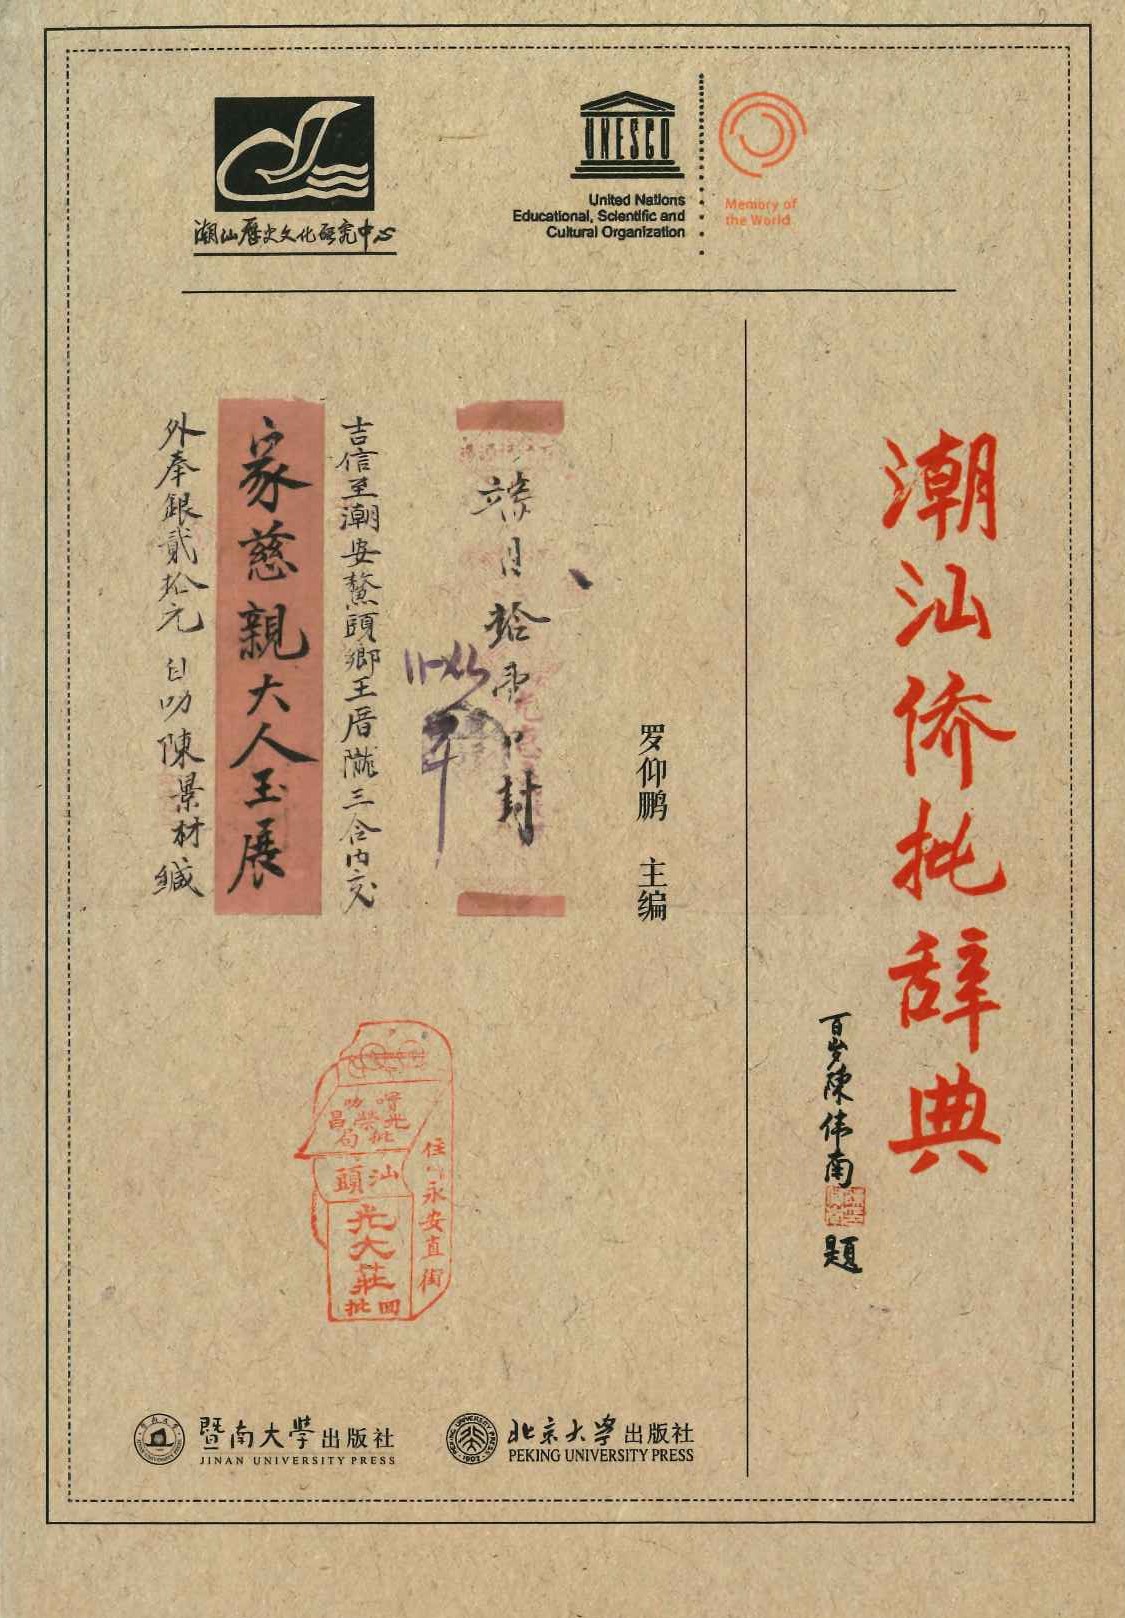 潮汕歷史文化研究中心
UNESCO
United Nations
Educational, Scientific and
Cultural Organization
Memory of
the World
潮汕侨批辞典
百岁陳伟南
題
罗仰鹏 主编
封
吉信至潮安鰲頭鄉王厝隴三合内交
家慈親大人玉展
外奉銀貳拾元 自叻陳景材緘
汕頭
光大莊
回批
住
永安直街
暨南大學出版社
JINAN UNIVERSITY PRESS
北京大学出版社
PEKING UNIVERSITY PRESS
PEKING UNIVERSITY PRESS
1902